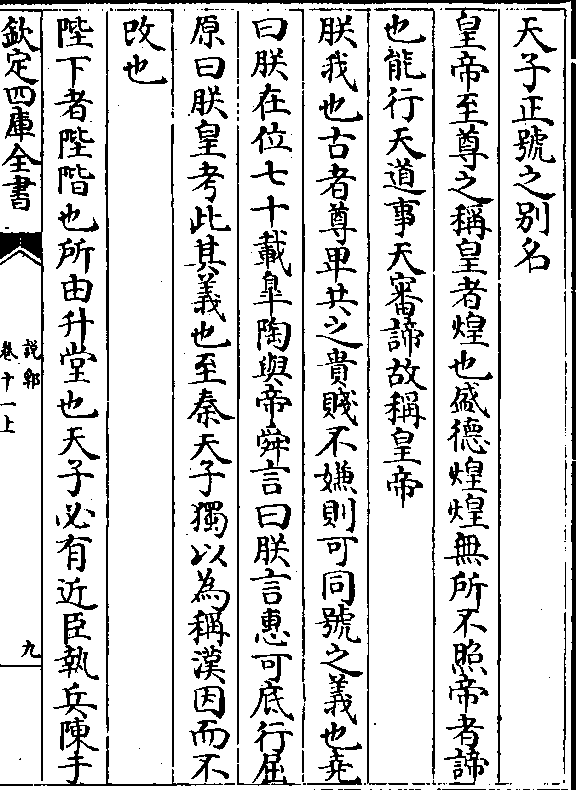 天子正號之别名
皇帝至尊之稱皇者煌也盛德煌煌無所不照帝者諦
也能行天道事天審諦故稱皇帝
朕我也古者尊卑共之貴賤不嫌則可同號之義也堯
曰朕在位七十載臯陶與帝舜言曰朕言惠可底行屈
原曰朕皇考此其義也至秦天子獨以為稱漢因而不
改也
陛下者陛階也所由升堂也天子必有近臣執兵陳于
欽定四庫全書
説郛
卷十一上
九